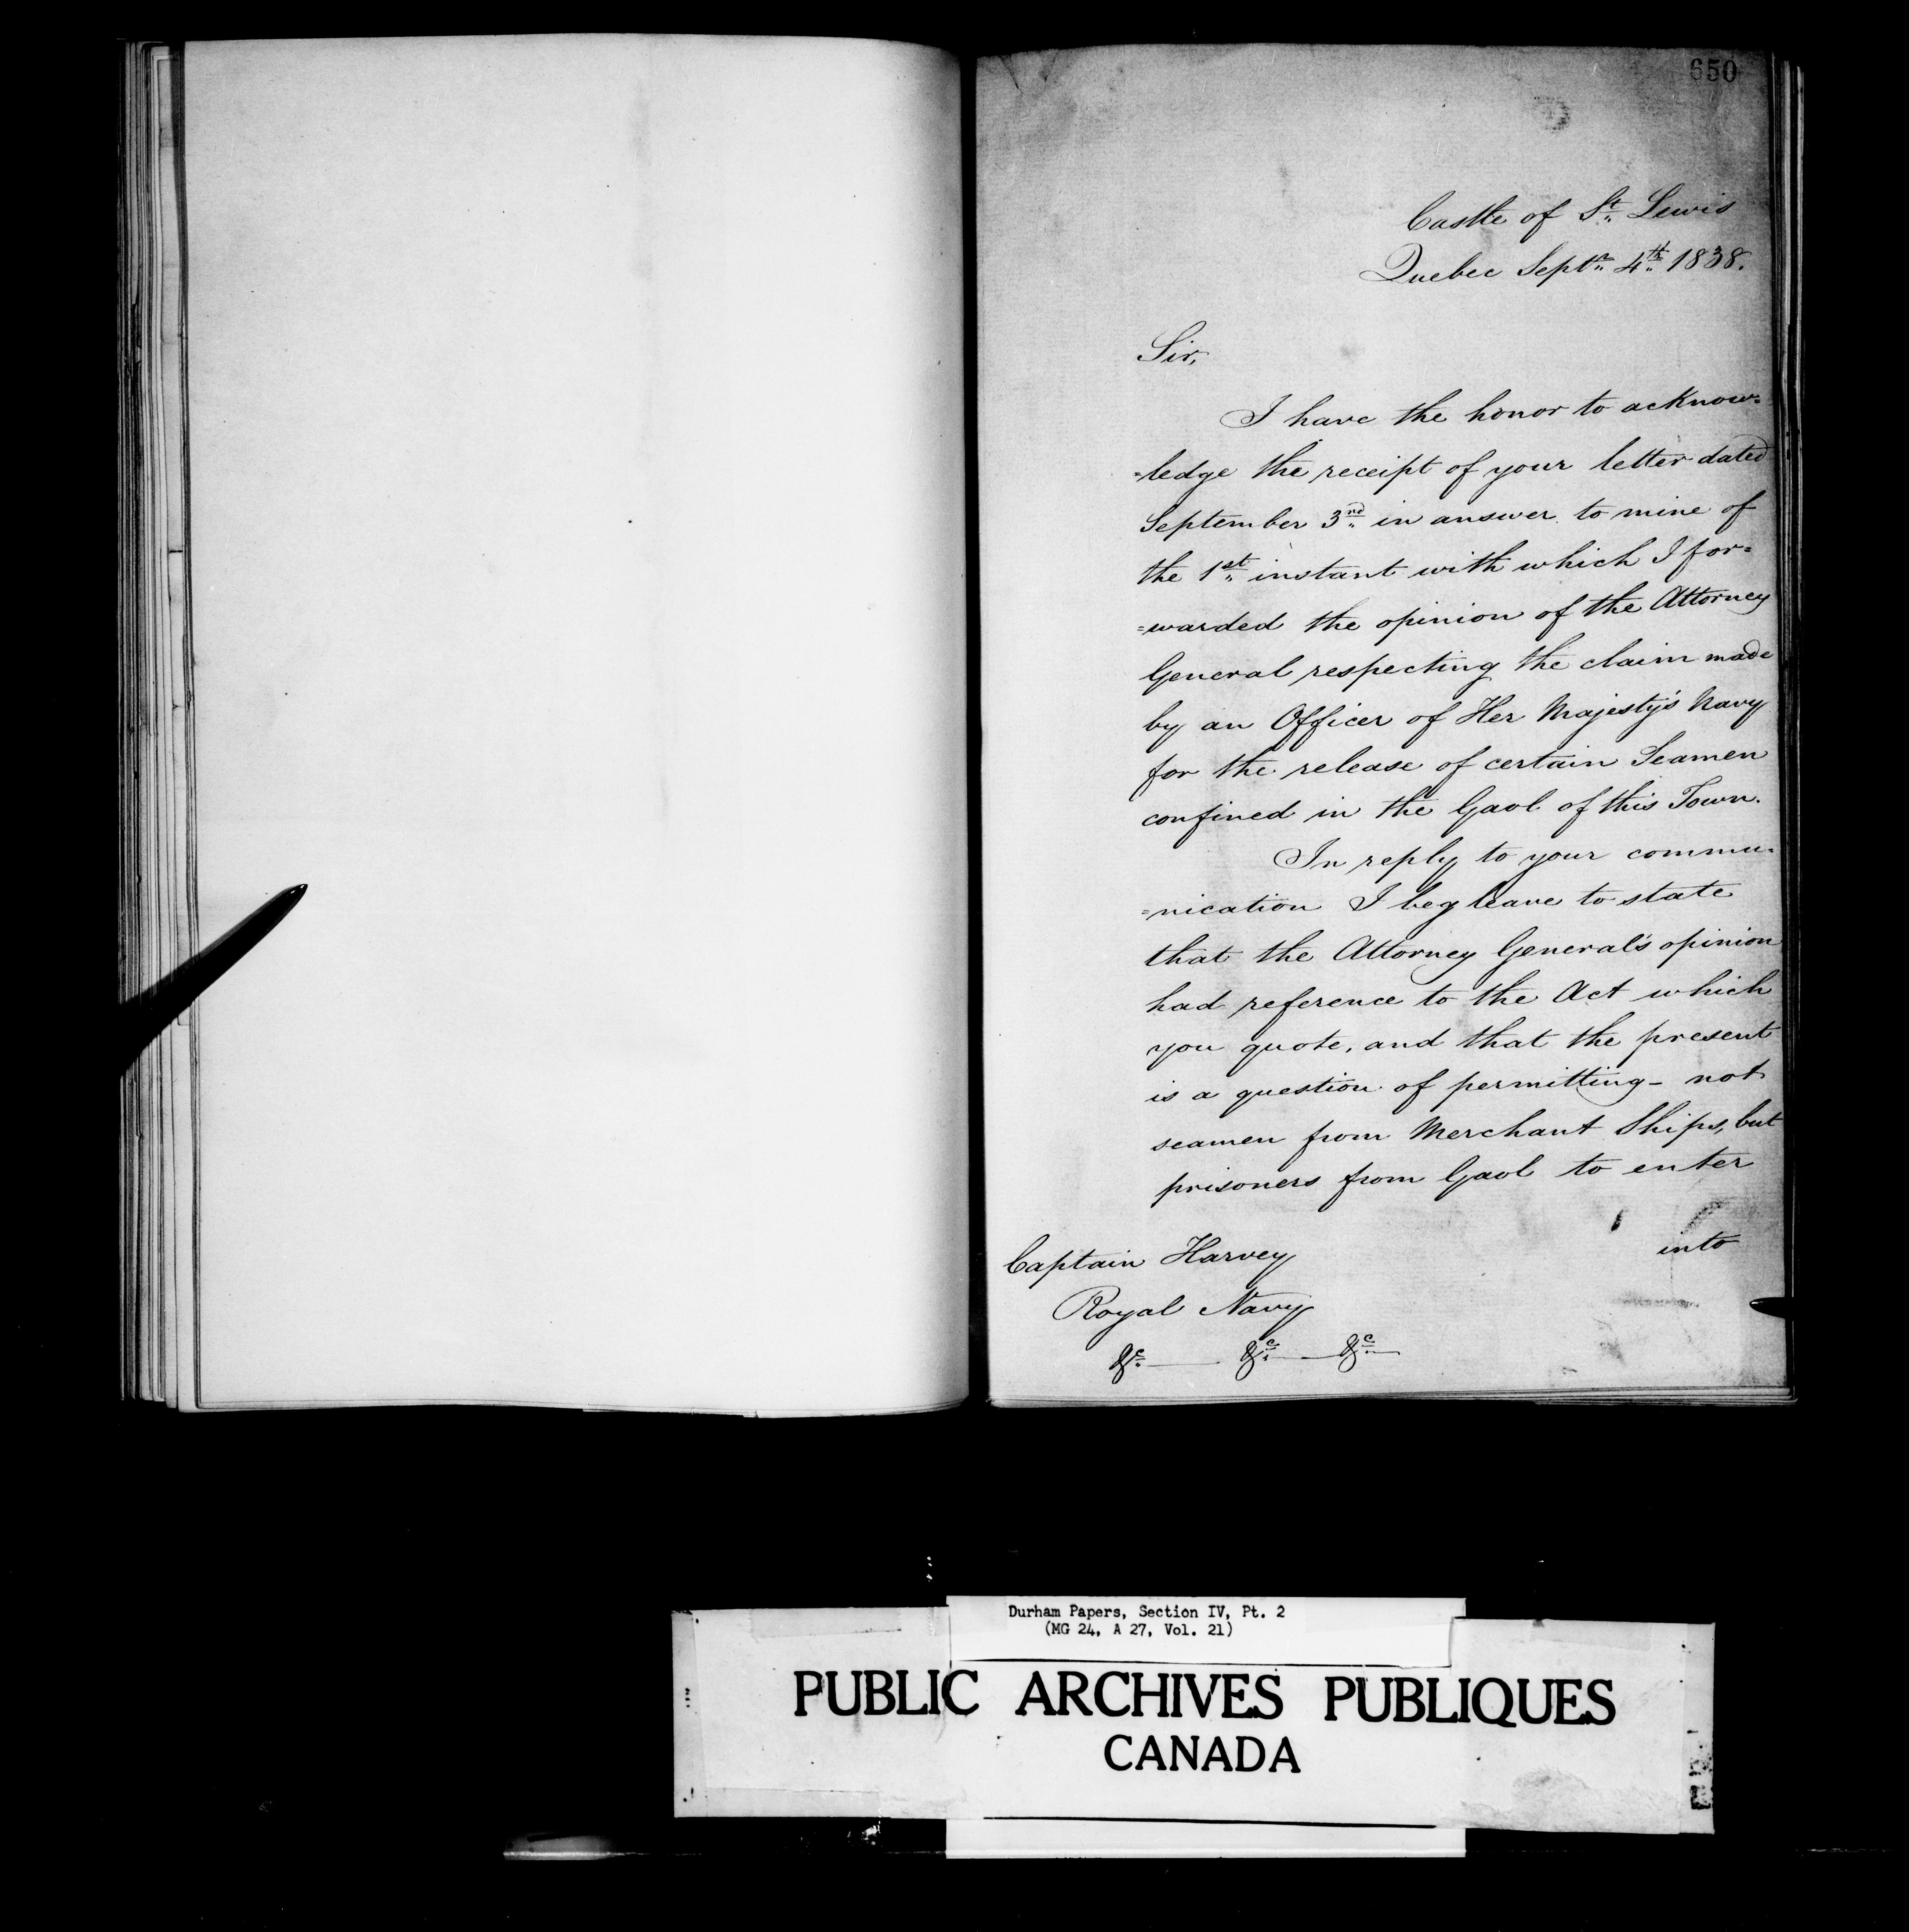 650
Castle of St. Lewis
Quebec Septr. 4th. 1838.
Sir,
I have the honor to acknow=
=ledge the receipt of your letter dated
September 3rd. in answer to mine of
the 1st. instant with which I for=
=warded the opinion of the Attorney
General respecting the claim made
by an Officer of Her Majesty's Navy
for the release of certain Seamen
confined in the Gaol of this Town.
In reply to your commu=
=nication I beg leave to state
that the Attorney General's opinion
had reference to the Act which
you quote, and that the present
is a question of permitting - not
seamen from Merchant Ships, but
prisoners from Gaol to enter
into
Captain Harvey
Royal Navy
&c. — &c. — &c. —
Durham Papers, Section IV, Pt. 2
(MG 24, A 27, Vol. 21)
PUBLIC ARCHIVES PUBLIQUES
CANADA